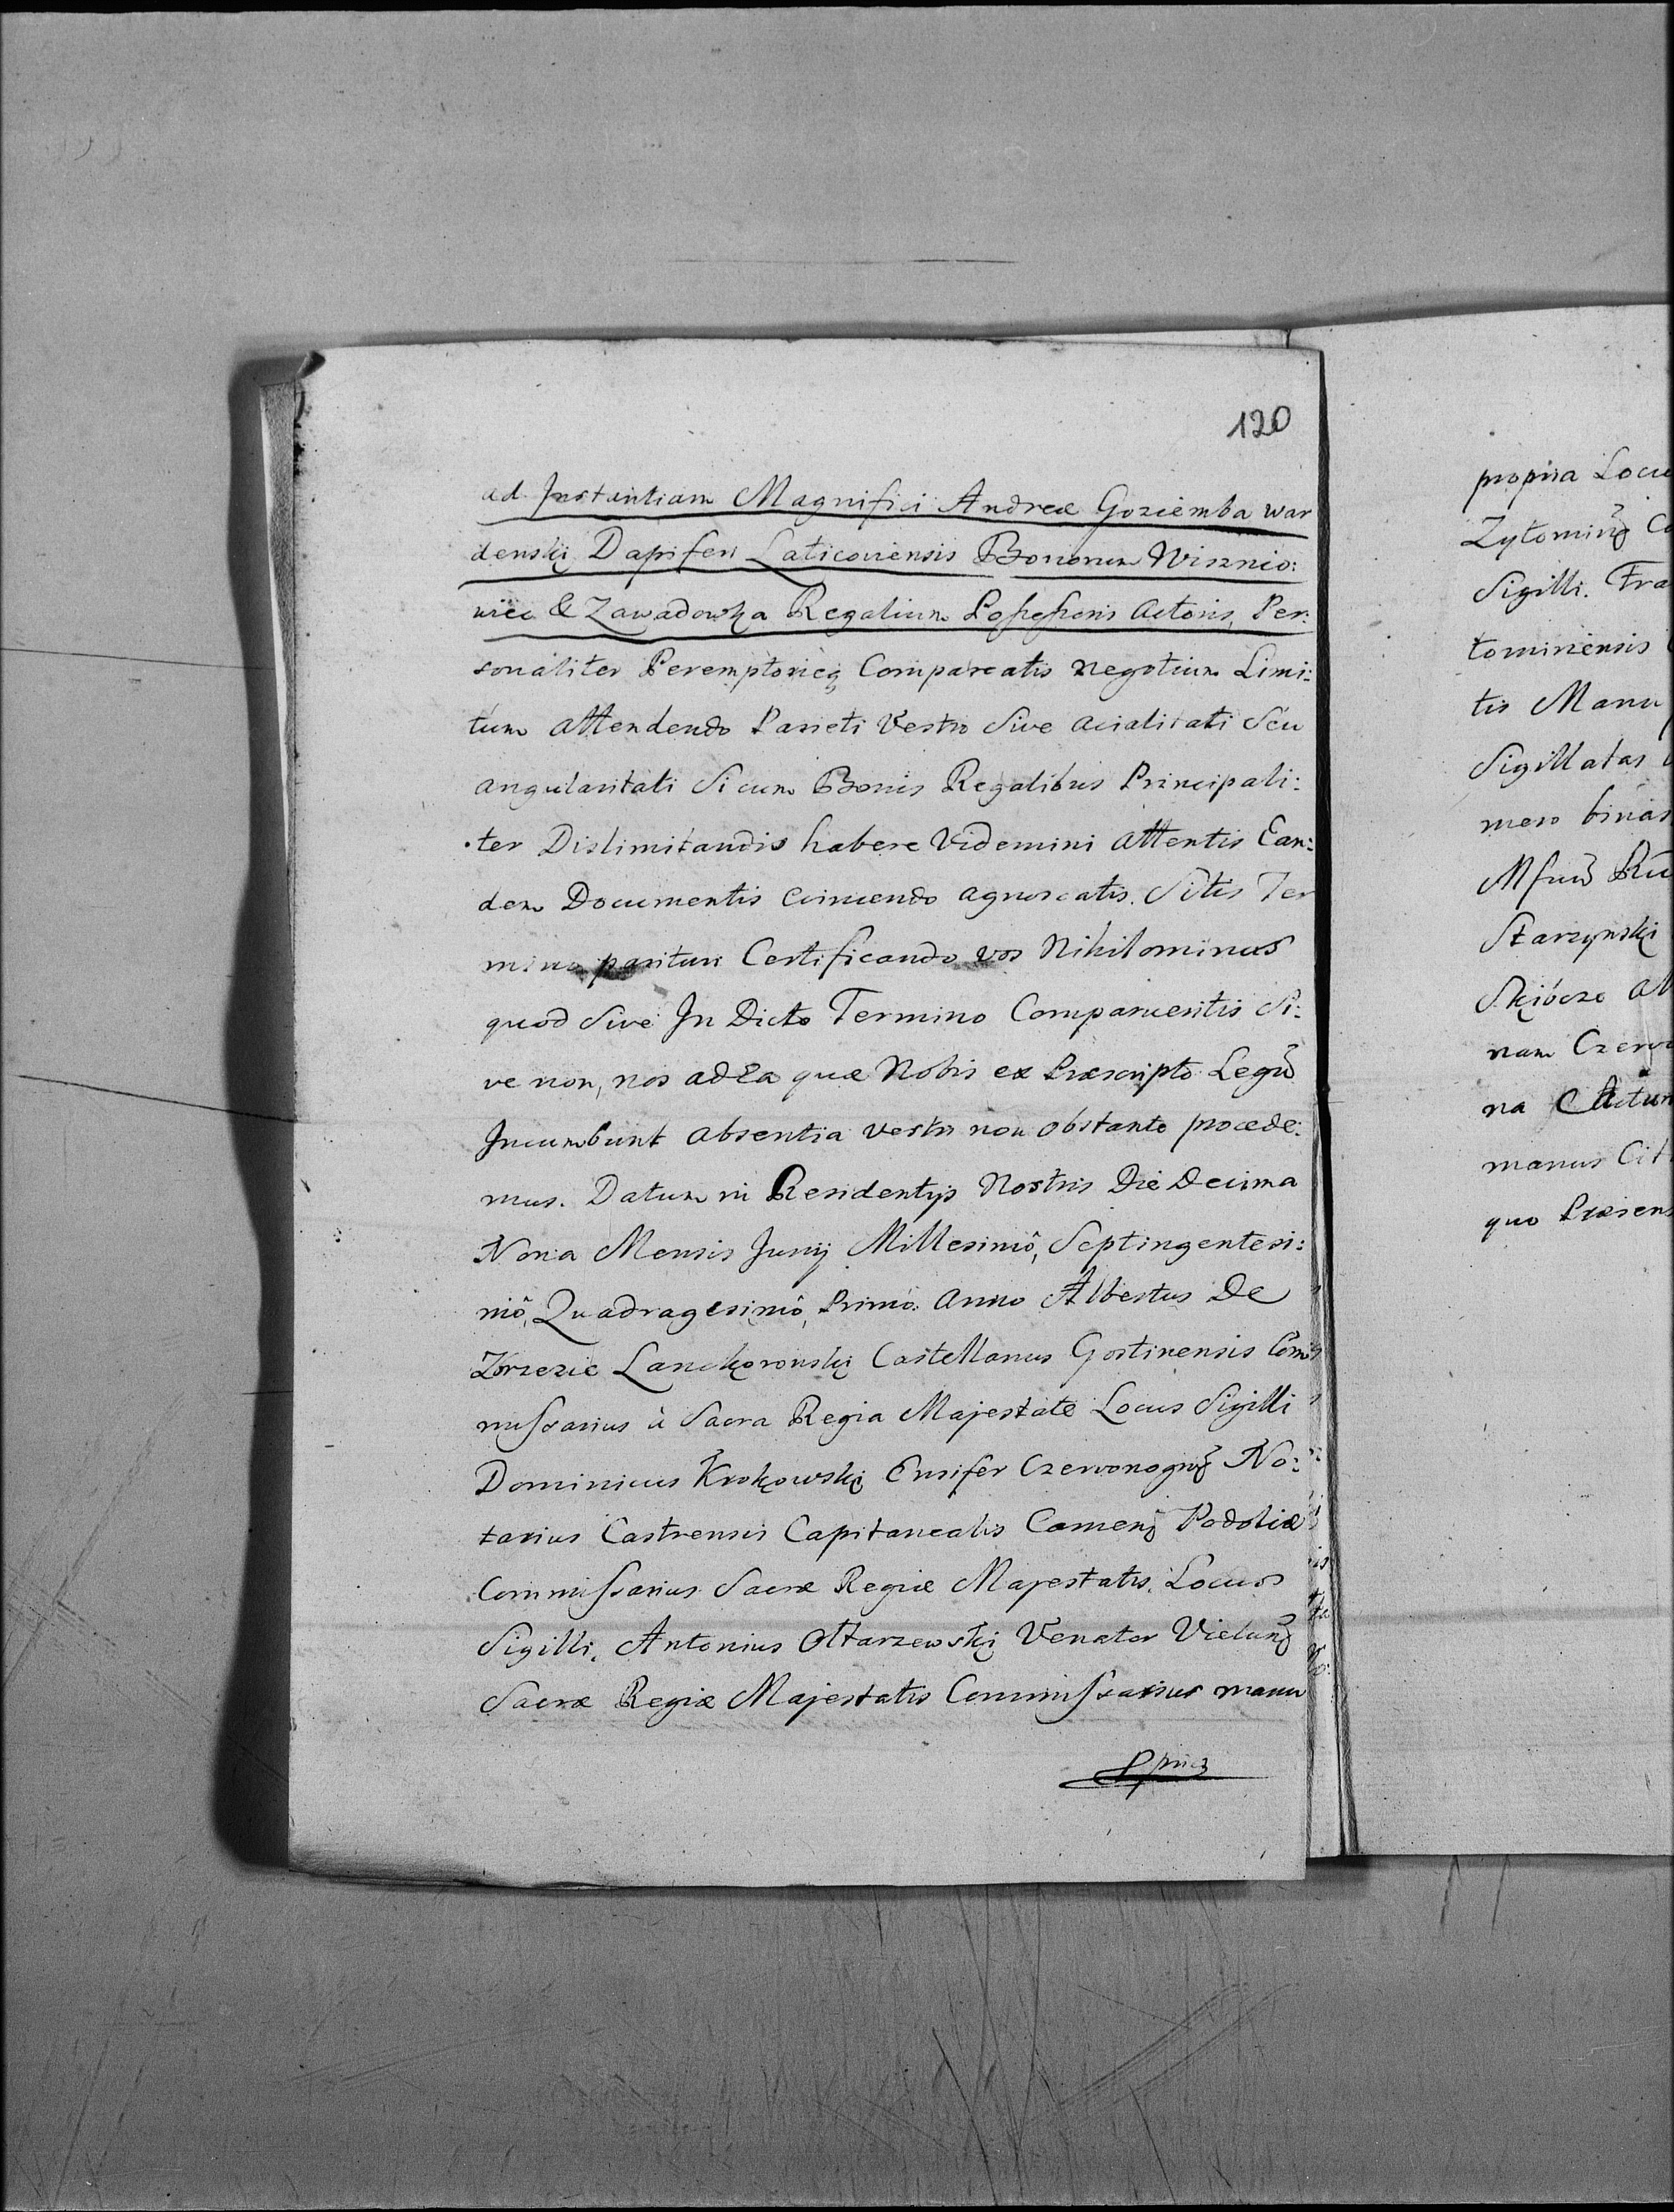 120
ad Instantiam Magnifici Andreæ Goziemba War
denski Dapiferi Laticoviensis Bonorum Wisznio:
wiec & Zawadowka Regalium Possessoris Actoris, Per:
sonaliter Peremptorieq Compareatis negotium Limi:
tum attendendo Parieti Vestro Sive acialitati Seu
angularitati Si cum Bonis Regalibus Principali:
ter Dislimitandis habere Videmini attentis Ean:
dem Documentis evincendo agnoscatis. Sitis Ter
mino parituri Certificando vos Nihilominus
quod Sive In Dicto Termino Comparueritis Si:
ve non, nos ad Ea quæ Nobis ex Præscripto Legũ
Incumbunt absentia vestra non obstante procede:
mus. Datum in Residentijs Nostris Die Decima
Nona Mensis Junij Millesimô, Septingentesi:
mô, Quadragesimô, Primo. Anno Albertus De
Brzezie Lanckoronski Castellanus Gostinensis Com̃
missarius à Sacra Regia Majestate Locus Sigilli
Dominicus Krokowski Ensifer Czerwonogroꝫ No:
tarius Castrensis Capitanealis Camenꝫ Podoliæ
Commissarius Sacræ Regiæ Majestatis. Locus
Sigilli, Antonius Ołtarzewski Venator Vielunꝫ
Sacræ Regiæ Majestatis Commissarius manu
propria Locu
Zytominꝫ Co
Sigilli. Fra
tominensis
tis Manu
Sigillatas
mero binas
Starzynski
nam Czerwo
na Actum
manus Cit
quo Præsens